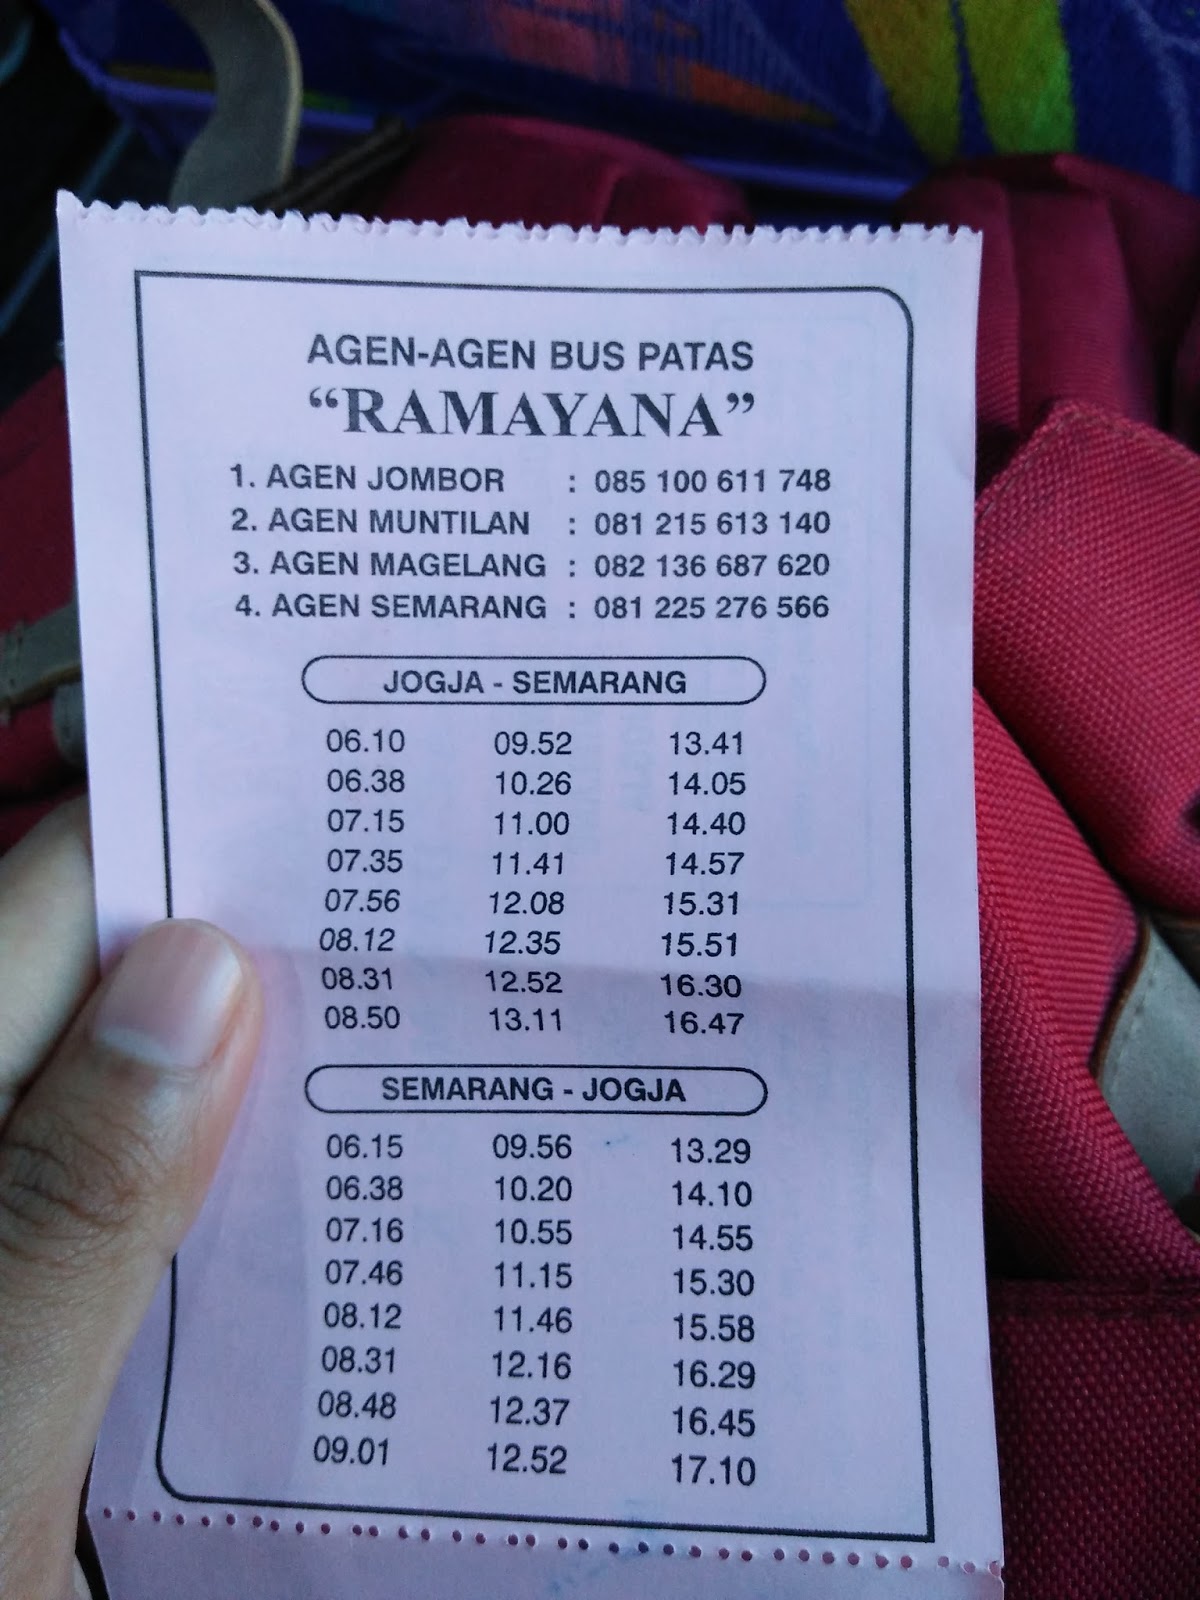 AGEN-AGEN BUS PATAS
“RAMAYANA”
1. AGEN JOMBOR : 085 100 611 748
2. AGEN MUNTILAN : 081 215 613 140
3. AGEN MAGELANG : 082 136 687 620
4. AGEN SEMARANG : 081 225 276 566
JOGJA - SEMARANG
06.10 09.52 13.41
06.38 10.26 14.05
07.15 11.00 14.40
07.35 11.41 14.57
07.56 12.08 15.31
08.12 12.35 15.51
08.31 12.52 16.30
08.50 13.11 16.47
SEMARANG - JOGJA
06.15 09.56 13.29
06.38 10.20 14.10
07.16 10.55 14.55
07.46 11.15 15.30
08.12 11.46 15.58
08.31 12.16 16.29
08.48 12.37 16.45
09.01 12.52 17.10